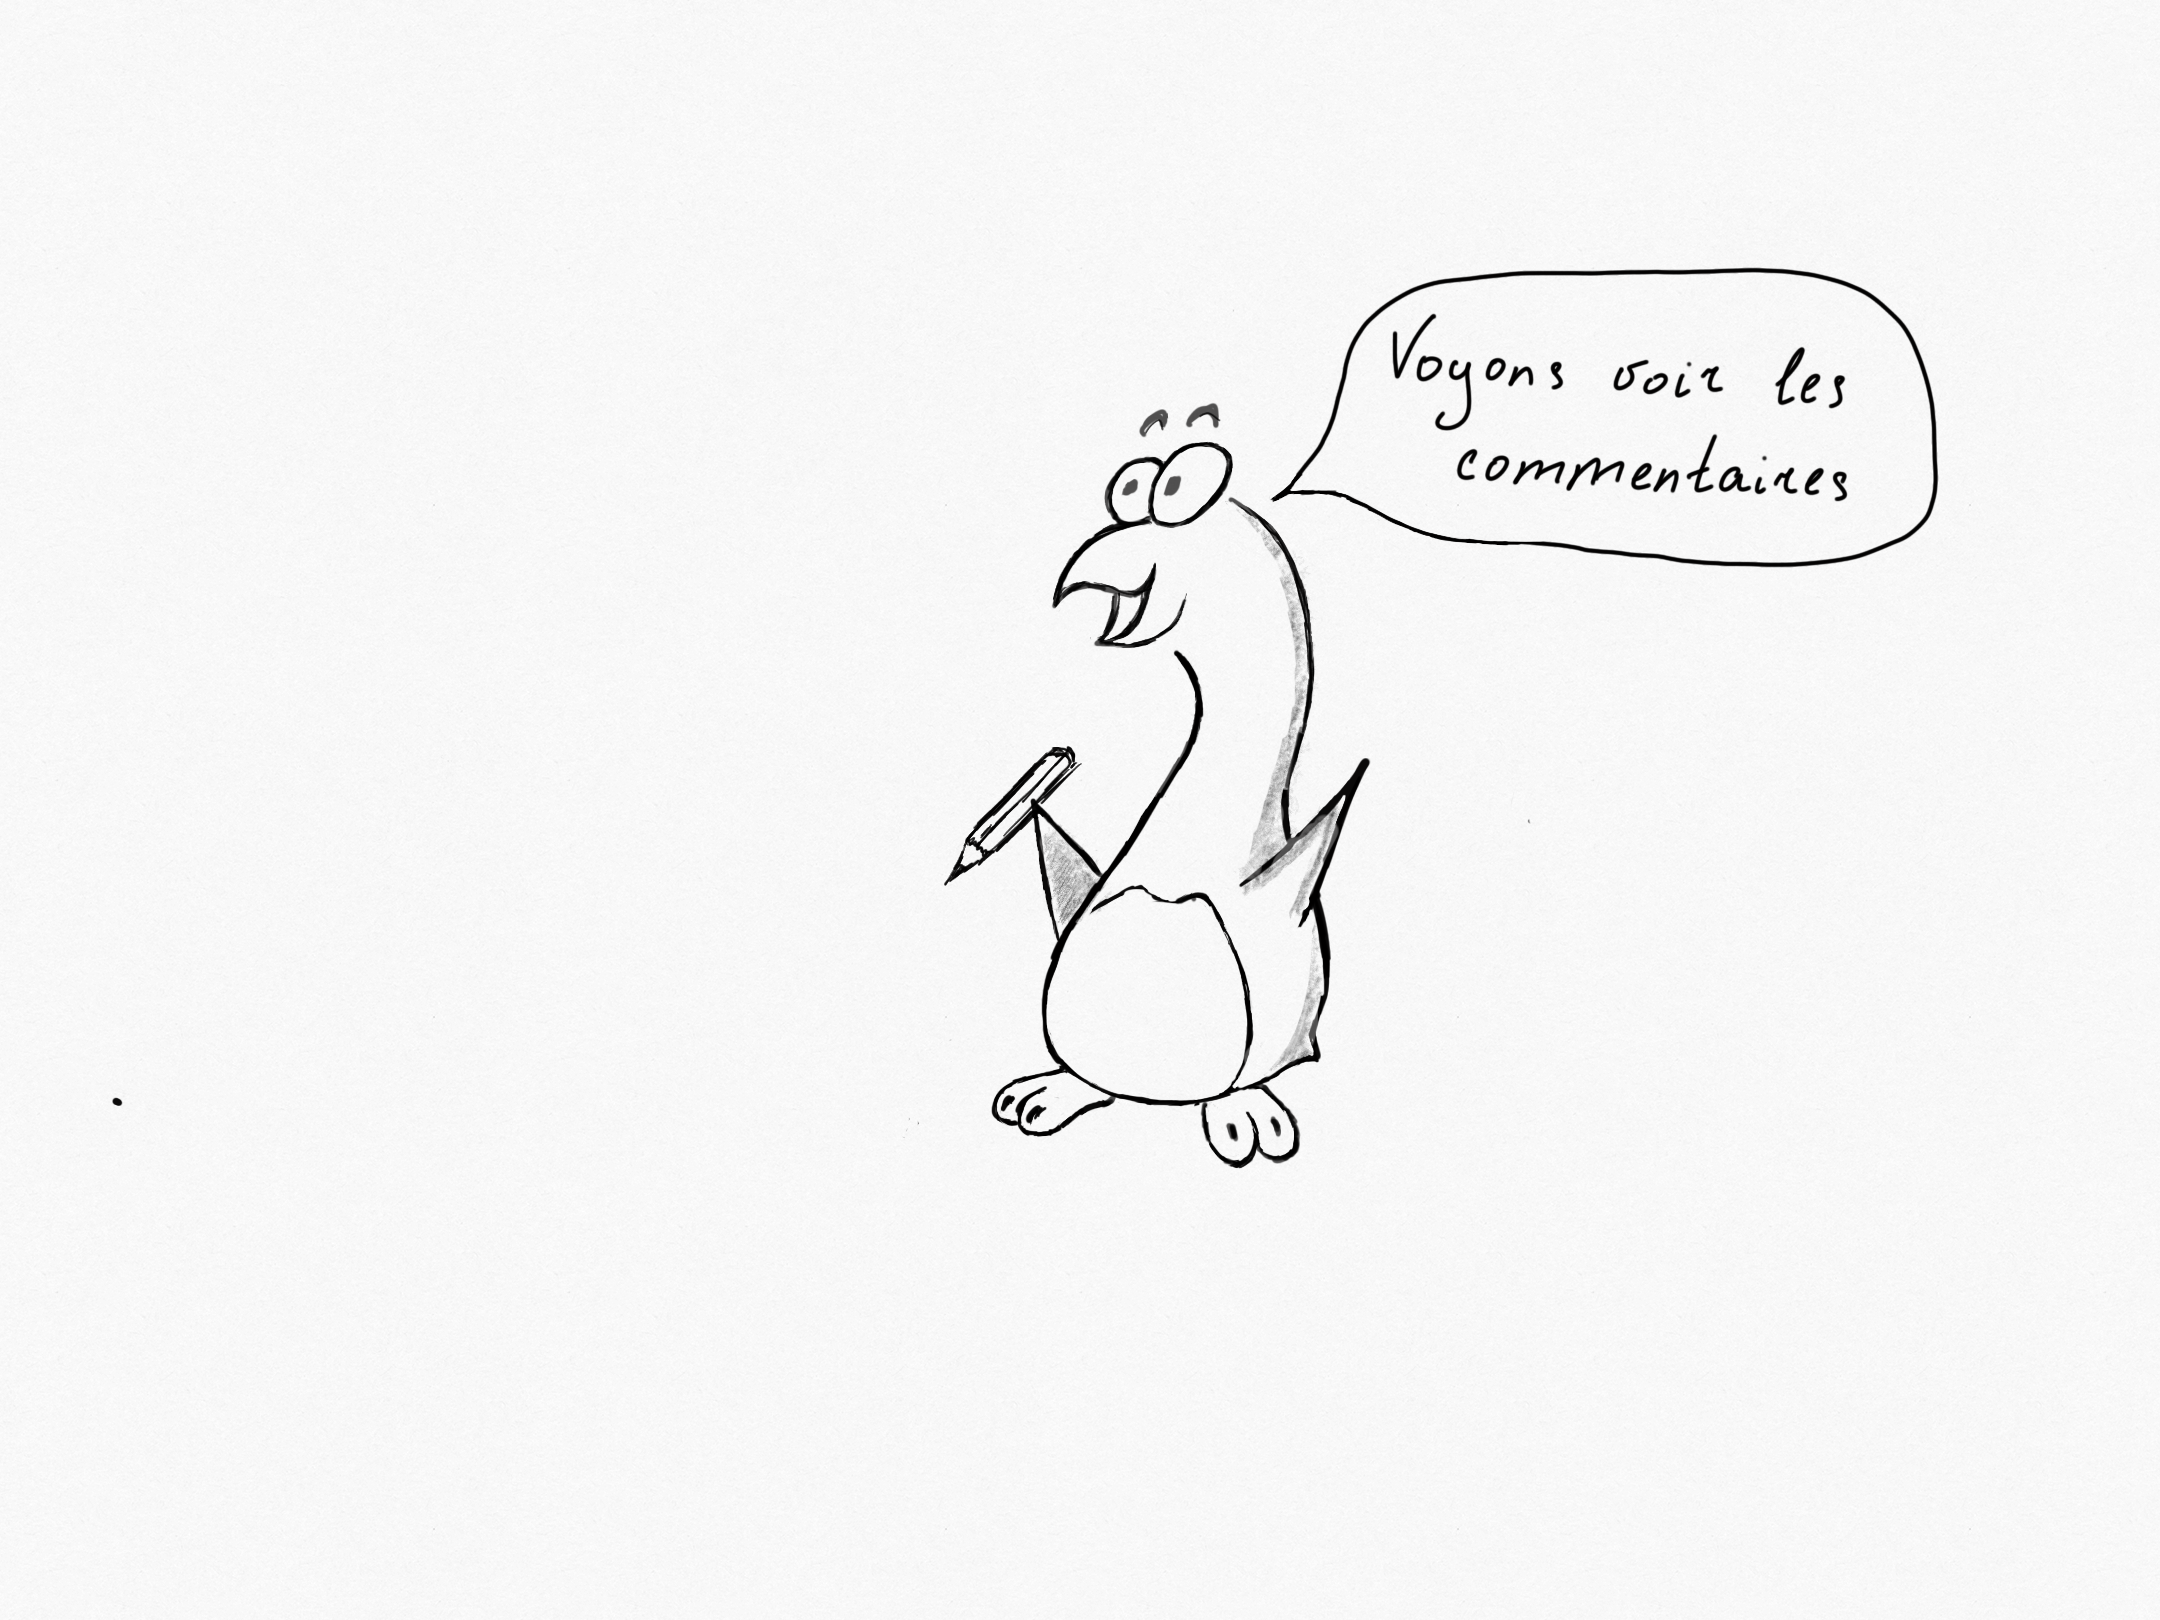 Voyons voir les
commentaires